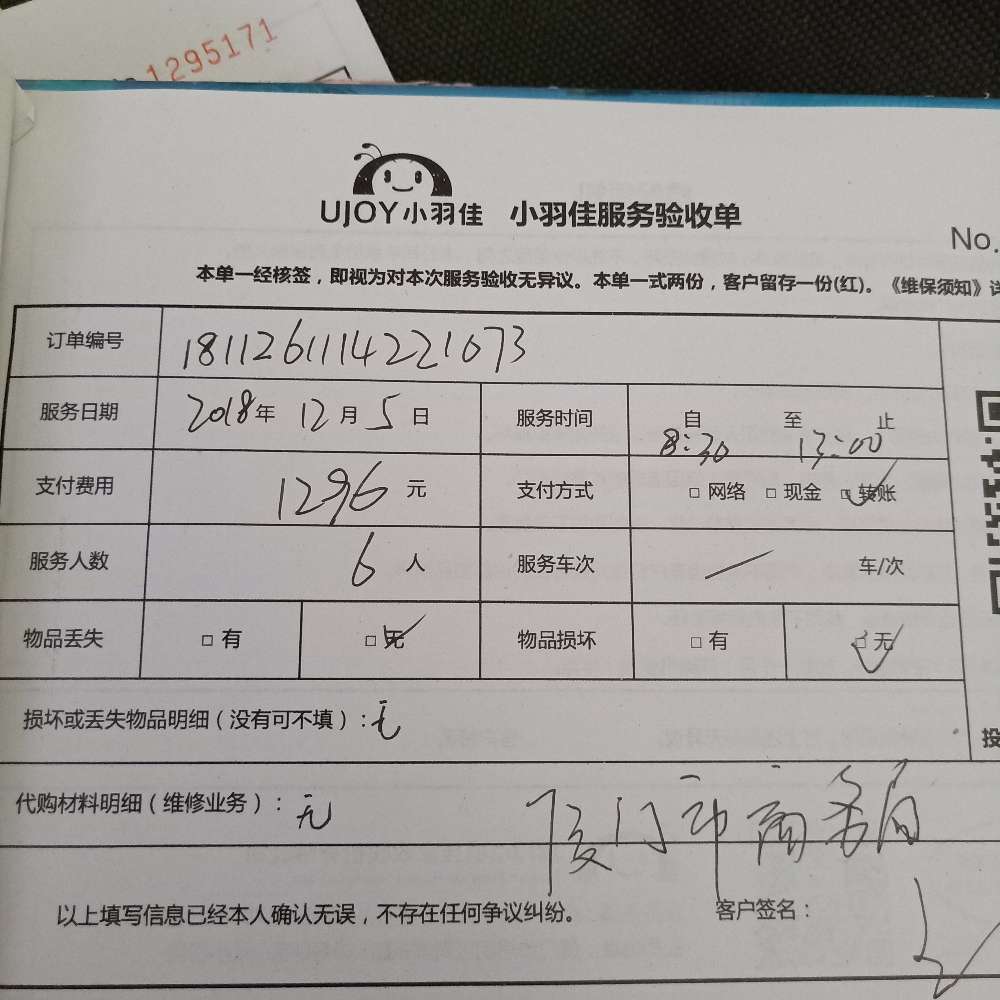 1295171
UJOY小羽佳 小羽佳服务验收单
No.
本单一经核签，即视为对本次服务验收无异议。本单一式两份，客户留存一份(红)。《维保须知》详
订单编号 1811261114221073
服务日期 2018年 12月 5日 服务时间 自 8:30 至 13:00 止
支付费用 1296 元 支付方式 □ 网络 □ 现金 □ 转账
服务人数 6 人 服务车次 / 车/次
物品丢失 □ 有 □ 无 物品损坏 □ 有 □ 无
损坏或丢失物品明细（没有可不填）：无
代购材料明细（维修业务）：无
厦门市商务局
以上填写信息已经本人确认无误，不存在任何争议纠纷。 客户签名：
投